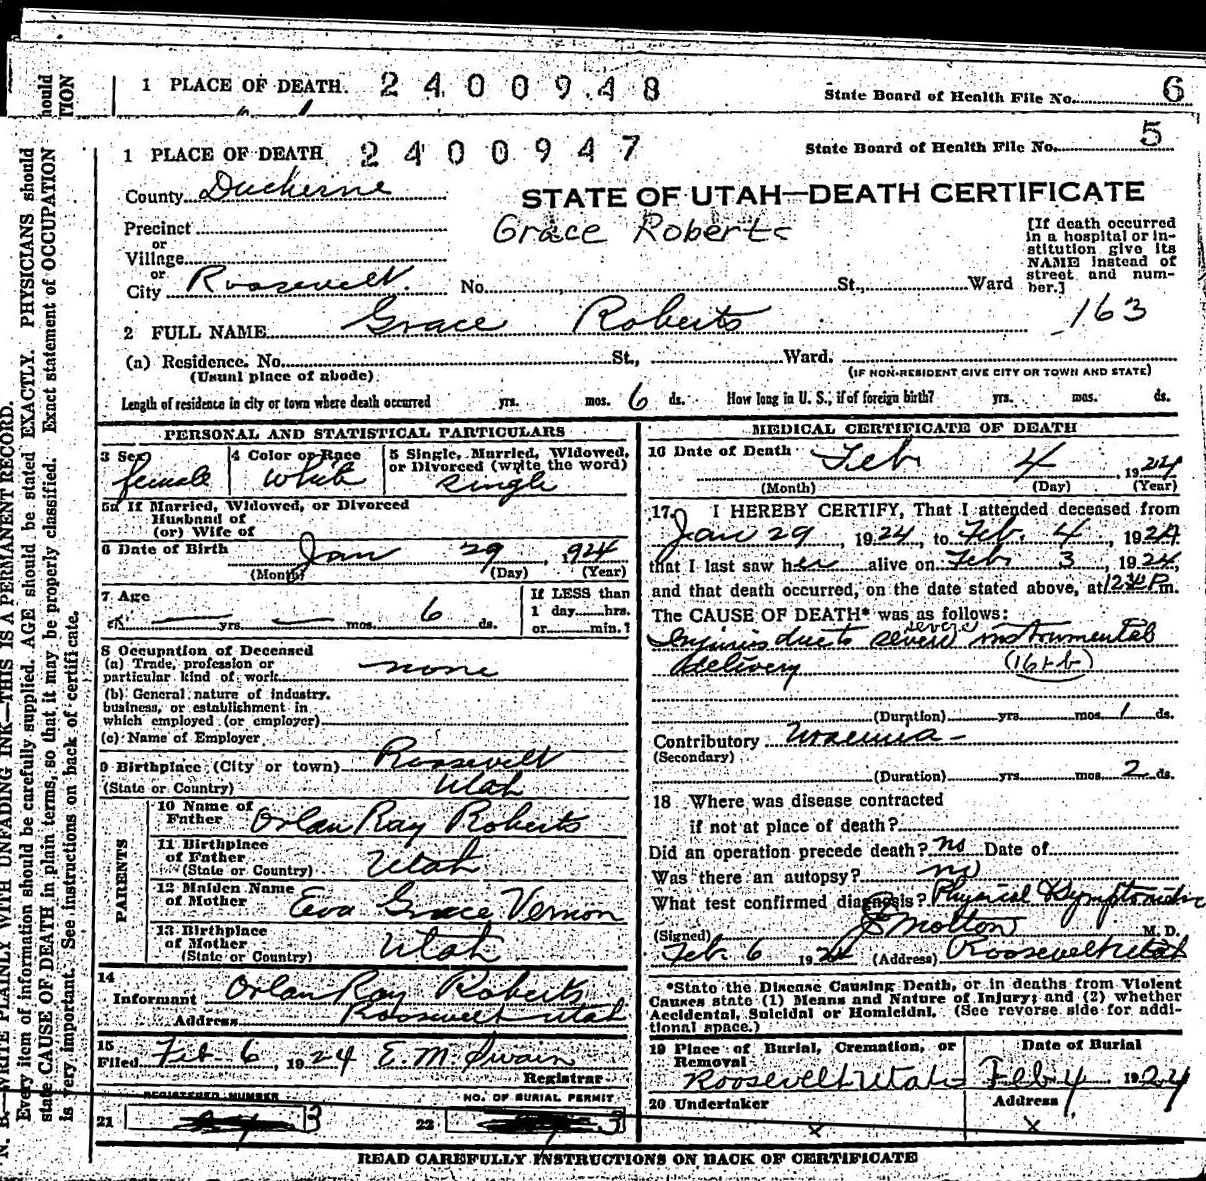 1 PLACE OF DEATH. 2400948 State Board of Health File No. 6
1 PLACE OF DEATH 2400947 State Board of Health File No. 5
County Duchesne
STATE OF UTAH—DEATH CERTIFICATE
Precinct
Grace Roberts
or
Village
or
City Roosevelt. No. St., Ward
[If death occurred
in a hospital or in-
stitution give its
NAME instead of
street and num-
ber.]
163
2 FULL NAME Grace Roberts
(a) Residence. No. St., Ward.
(Usual place of abode)
(IF NON-RESIDENT GIVE CITY OR TOWN AND STATE)
Length of residence in city or town where death occurred yrs. mos. 6 ds. How long in U. S., if of foreign birth? yrs. mos. ds.
PERSONAL AND STATISTICAL PARTICULARS
3 Sex female
4 Color or Race white
5 Single, Married, Widowed,
or Divorced (write the word)
single
5a If Married, Widowed, or Divorced
Husband of
(or) Wife of
6 Date of Birth Jan 29, 924
(Month) (Day) (Year)
7 Age
yrs. mos. 6 ds.
If LESS than
1 day hrs.
or min.?
8 Occupation of Deceased
(a) Trade, profession or
particular kind of work none
(b) General nature of industry,
business, or establishment in
which employed (or employer)
(c) Name of Employer
9 Birthplace (City or town) Roosevelt
(State or Country) Utah
PARENTS
10 Name of
Father Orlan Ray Roberts
11 Birthplace
of Father
(State or Country) Utah
12 Maiden Name
of Mother Eva Grace Vernon
13 Birthplace
of Mother
(State or Country) Utah
14
Informant Orlan Ray Roberts
Address Roosevelt Utah
15
Filed Feb 6, 1924 E. M. Swain
Registrar
REGISTERED NUMBER
21 3
NO. OF BURIAL PERMIT
22 3
MEDICAL CERTIFICATE OF DEATH
16 Date of Death Feb 4, 1924
(Month) (Day) (Year)
17 I HEREBY CERTIFY, That I attended deceased from
Jan 29, 1924, to Feb. 4, 1924
that I last saw her alive on Feb 3, 1924,
and that death occurred, on the date stated above, at 12 30 P m.
The CAUSE OF DEATH* was as follows:
severe
Injuries due to severe instrumental
delivery (161-b)
(Duration) yrs. mos. 1 ds.
Contributory Uraemia -
(Secondary)
(Duration) yrs. mos. 2 ds.
18 Where was disease contracted
if not at place of death?
Did an operation precede death? no Date of
Was there an autopsy? no
What test confirmed diagnosis? Physical & Symptomatic
(Signed) Molton M. D.
Feb. 6 1924 (Address) Roosevelt Utah
*State the Disease Causing Death, or in deaths from Violent
Causes state (1) Means and Nature of Injury; and (2) whether
Accidental, Suicidal or Homicidal. (See reverse side for addi-
tional space.)
19 Place of Burial, Cremation, or
Removal
Roosevelt Utah
Date of Burial
Feb 4 1924
20 Undertaker x
Address x
READ CAREFULLY INSTRUCTIONS ON BACK OF CERTIFICATE
N. B.—WRITE PLAINLY WITH UNFADING INK—THIS IS A PERMANENT RECORD.
Every item of information should be carefully supplied. AGE should be stated EXACTLY. PHYSICIANS should
state CAUSE OF DEATH in plain terms, so that it may be properly classified. Exact statement of OCCUPATION
is very important. See instructions on back of certificate.